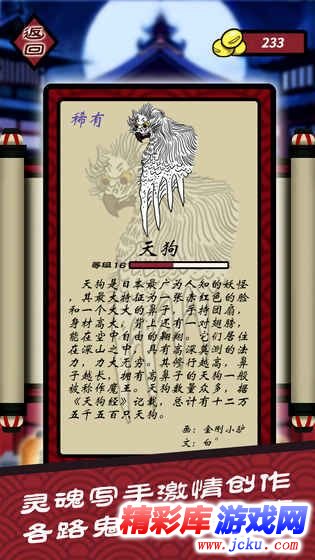 返回
233
稀有
天狗
等级16
天狗是日本最广为人知的妖怪
，其最大特征为一张赤红色的脸
和一个大大的鼻子，手持团扇，
身材高大，背上还有一对翅膀，
能在空中自由的翱翔。它们居住
在深山之中，具有高深莫测的法
力，力大无穷。其修行越高，鼻
子越长，拥有高鼻子的天狗一般
被称作魔王。天狗数量众多，据
《天狗经》记载，总计有十二万
五千五百只天狗。
画：金刚小驴
文：白
灵魂写手激情创作
各路鬼
精彩库游戏网
www.jcku.com